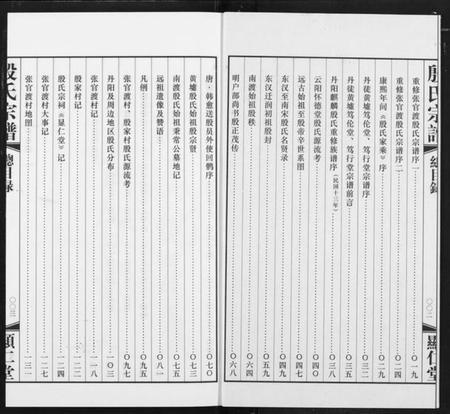 殷氏宗譜 總目錄 〇〇二 顯仁堂
重修张官渡殷氏宗谱序一……〇一九
重修张官渡殷氏宗谱序二……〇二四
康熙年间《殷氏家乘》序……〇二九
丹徒黄墟笃伦堂、笃行堂宗谱序
丹徒黄墟笃伦堂、笃行堂宗谱前言……〇三五
丹阳麒麟殷氏重修族谱序(民国十三年)……〇三八
云阳怀德堂殷氏源流考
远古始祖至殷帝辛世系图
东汉至南宋殷氏名贤录
东汉迁润初祖殷封
南渡始祖殷秩……〇六四
明户部尚书殷正茂传……〇六八
唐·韩愈送殷员外使回鹘序……〇七〇
黄墟殷氏始祖殷宗贤……〇七三
南渡殷氏始祖秉常公墓地记……〇七五
远祖遗像及赞语……〇八一
凡例……〇九五
张官渡村、殷家村殷氏源流考……〇九七
丹阳及周边地区殷氏分布……一〇三
张官渡村记……一一八
殷家村记……一二二
殷氏宗祠《显仁堂》记……一二四
张官渡村大事记……一二七
张官渡村地图……一三一
殷氏宗譜 總目錄 〇〇三 顯仁堂